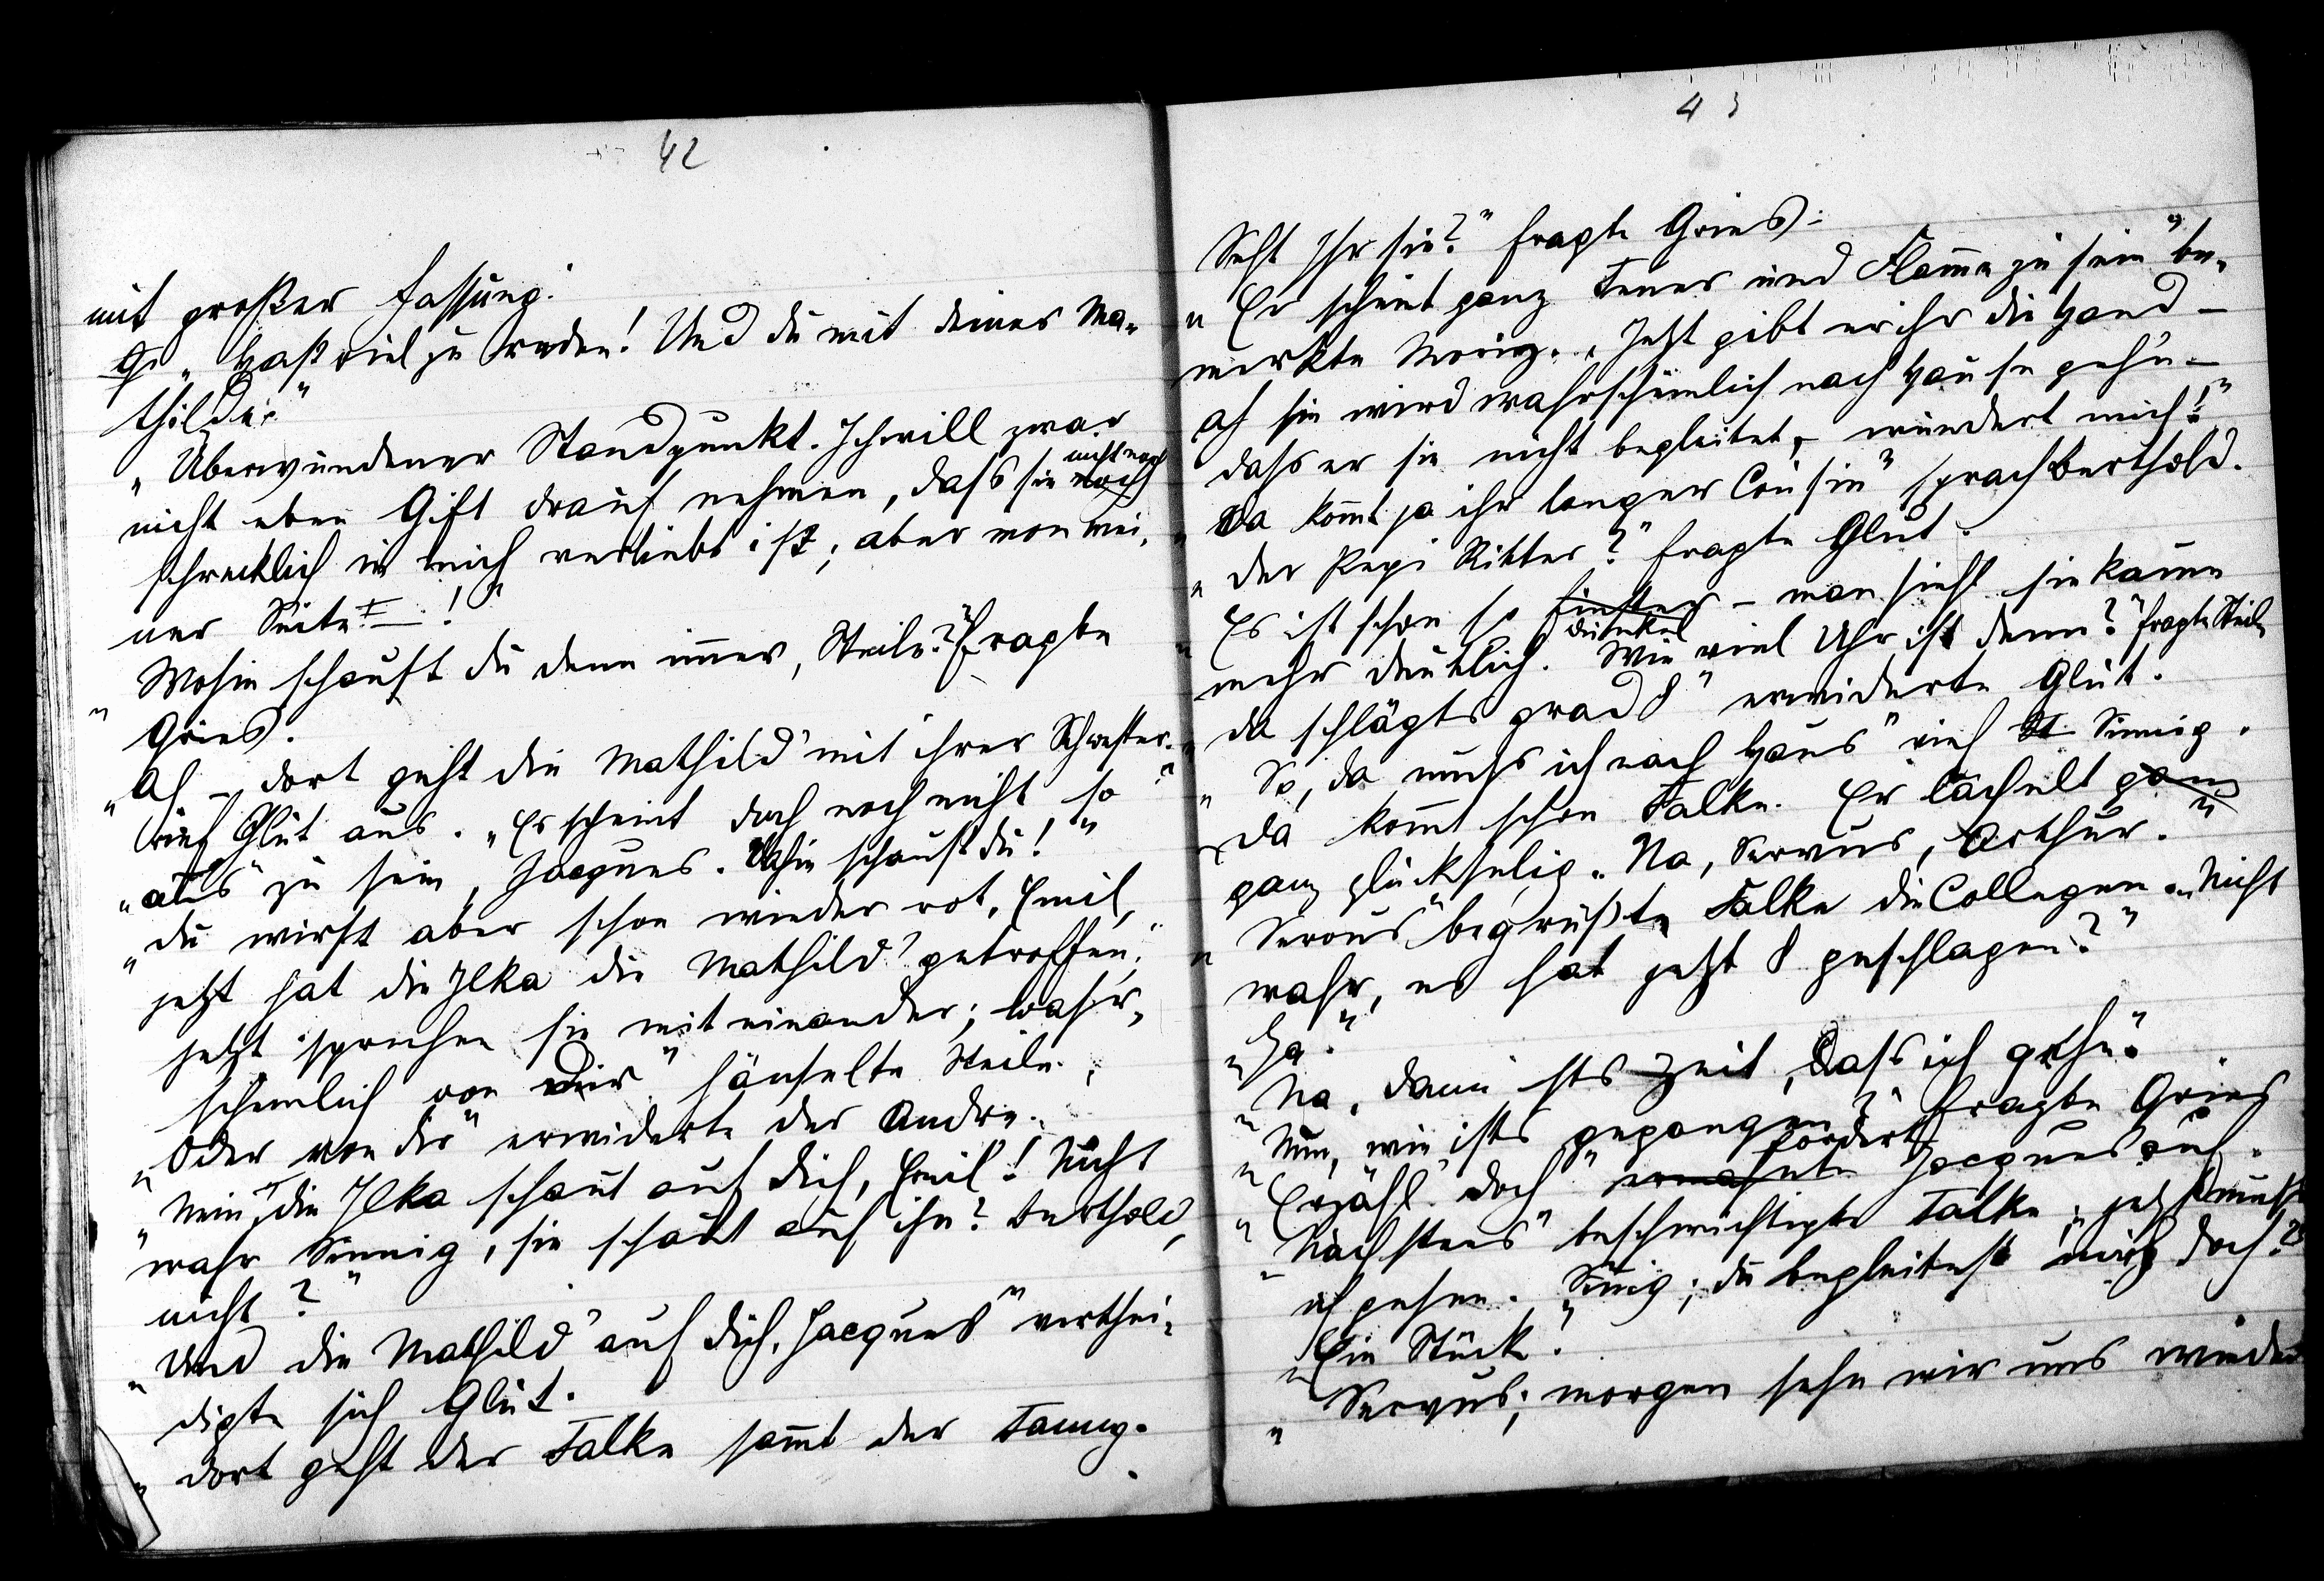 42
mit großer Fassung.
„Hast viel zu reden! Und du mit deiner Ma-
thilde."
„Überwundener Standpunkt. Ich will zwar
nicht eben Gift drauf nehmen, dass sie nicht noch
schrecklich in mich verliebt ist; aber von mei-
ner Seite – !"
„Wohin schaust du denn immer, Steile?" fragte
Gries.
„Ah – dort geht die Mathild' mit ihrer Schwester"
rief Glut aus. „Es scheint doch noch nicht so
„aus" zu sein, Jacques. Wohin schaust du!"
„Du wirst aber schon wieder rot, Emil,
jetzt hat die Ilka die Mathild' getroffen;
jetzt sprechen sie mit einander; wahr-
scheinlich von Dir" hänselte Steile.
„Oder von dir" erwiderte der Andre.
„Nein, die Ilka schaut auf dich, Emil! Nicht
wahr Sinnig, sie schaut auf ihn? Berthold,
nicht?"
„Und die Mathild' auf dich, Jacques" verthei-
digte sich Glut.
„Dort geht der Falke sammt der Fanny.
43
Seht Ihr sie?" fragte Gries.
„Er scheint ganz Feuer und Flamme zu sein" be-
merkte Moriz. „Jetzt gibt er ihr die Hand –
ah sie wird wahrscheinlich nach Hause gehn –
dass er sie nicht begleitet, wundert mich!"
„Da kommt ja ihr langer Cousin" sprach Berthold.
„Der Pepi Ritter?" fragte Glut.
„Es ist schon so finster dunkel – man sieht sie kaum
mehr deutlich. Wie viel Uhr ist denn?" fragte Steile
„Da schlägts grad 8" erwiderte Glut.
„So, da muss ich nach Haus" rief St. Sinnig.
„Da kommt schon Falke. Er lächelt ganz
ganz glückselig. Na, Servus, Arthur."
„Servus" begrüßte Falke die Collegen. „Nicht
wahr, es hat jetzt 8 geschlagen?"
„Ja."
„Na, dann ists Zeit, dass ich gehe."
„Nun, wie ists gegangen?" fragte Gries
„Erzähl doch" ermahnte forderte Jacques auf.
„Nächstens" beschwichtigte Falke, „jetzt muss
ich gehen. Sinnig; du begleitest mich doch?"
„Ein Stück."
„Servus; morgen sehn wir uns wieder